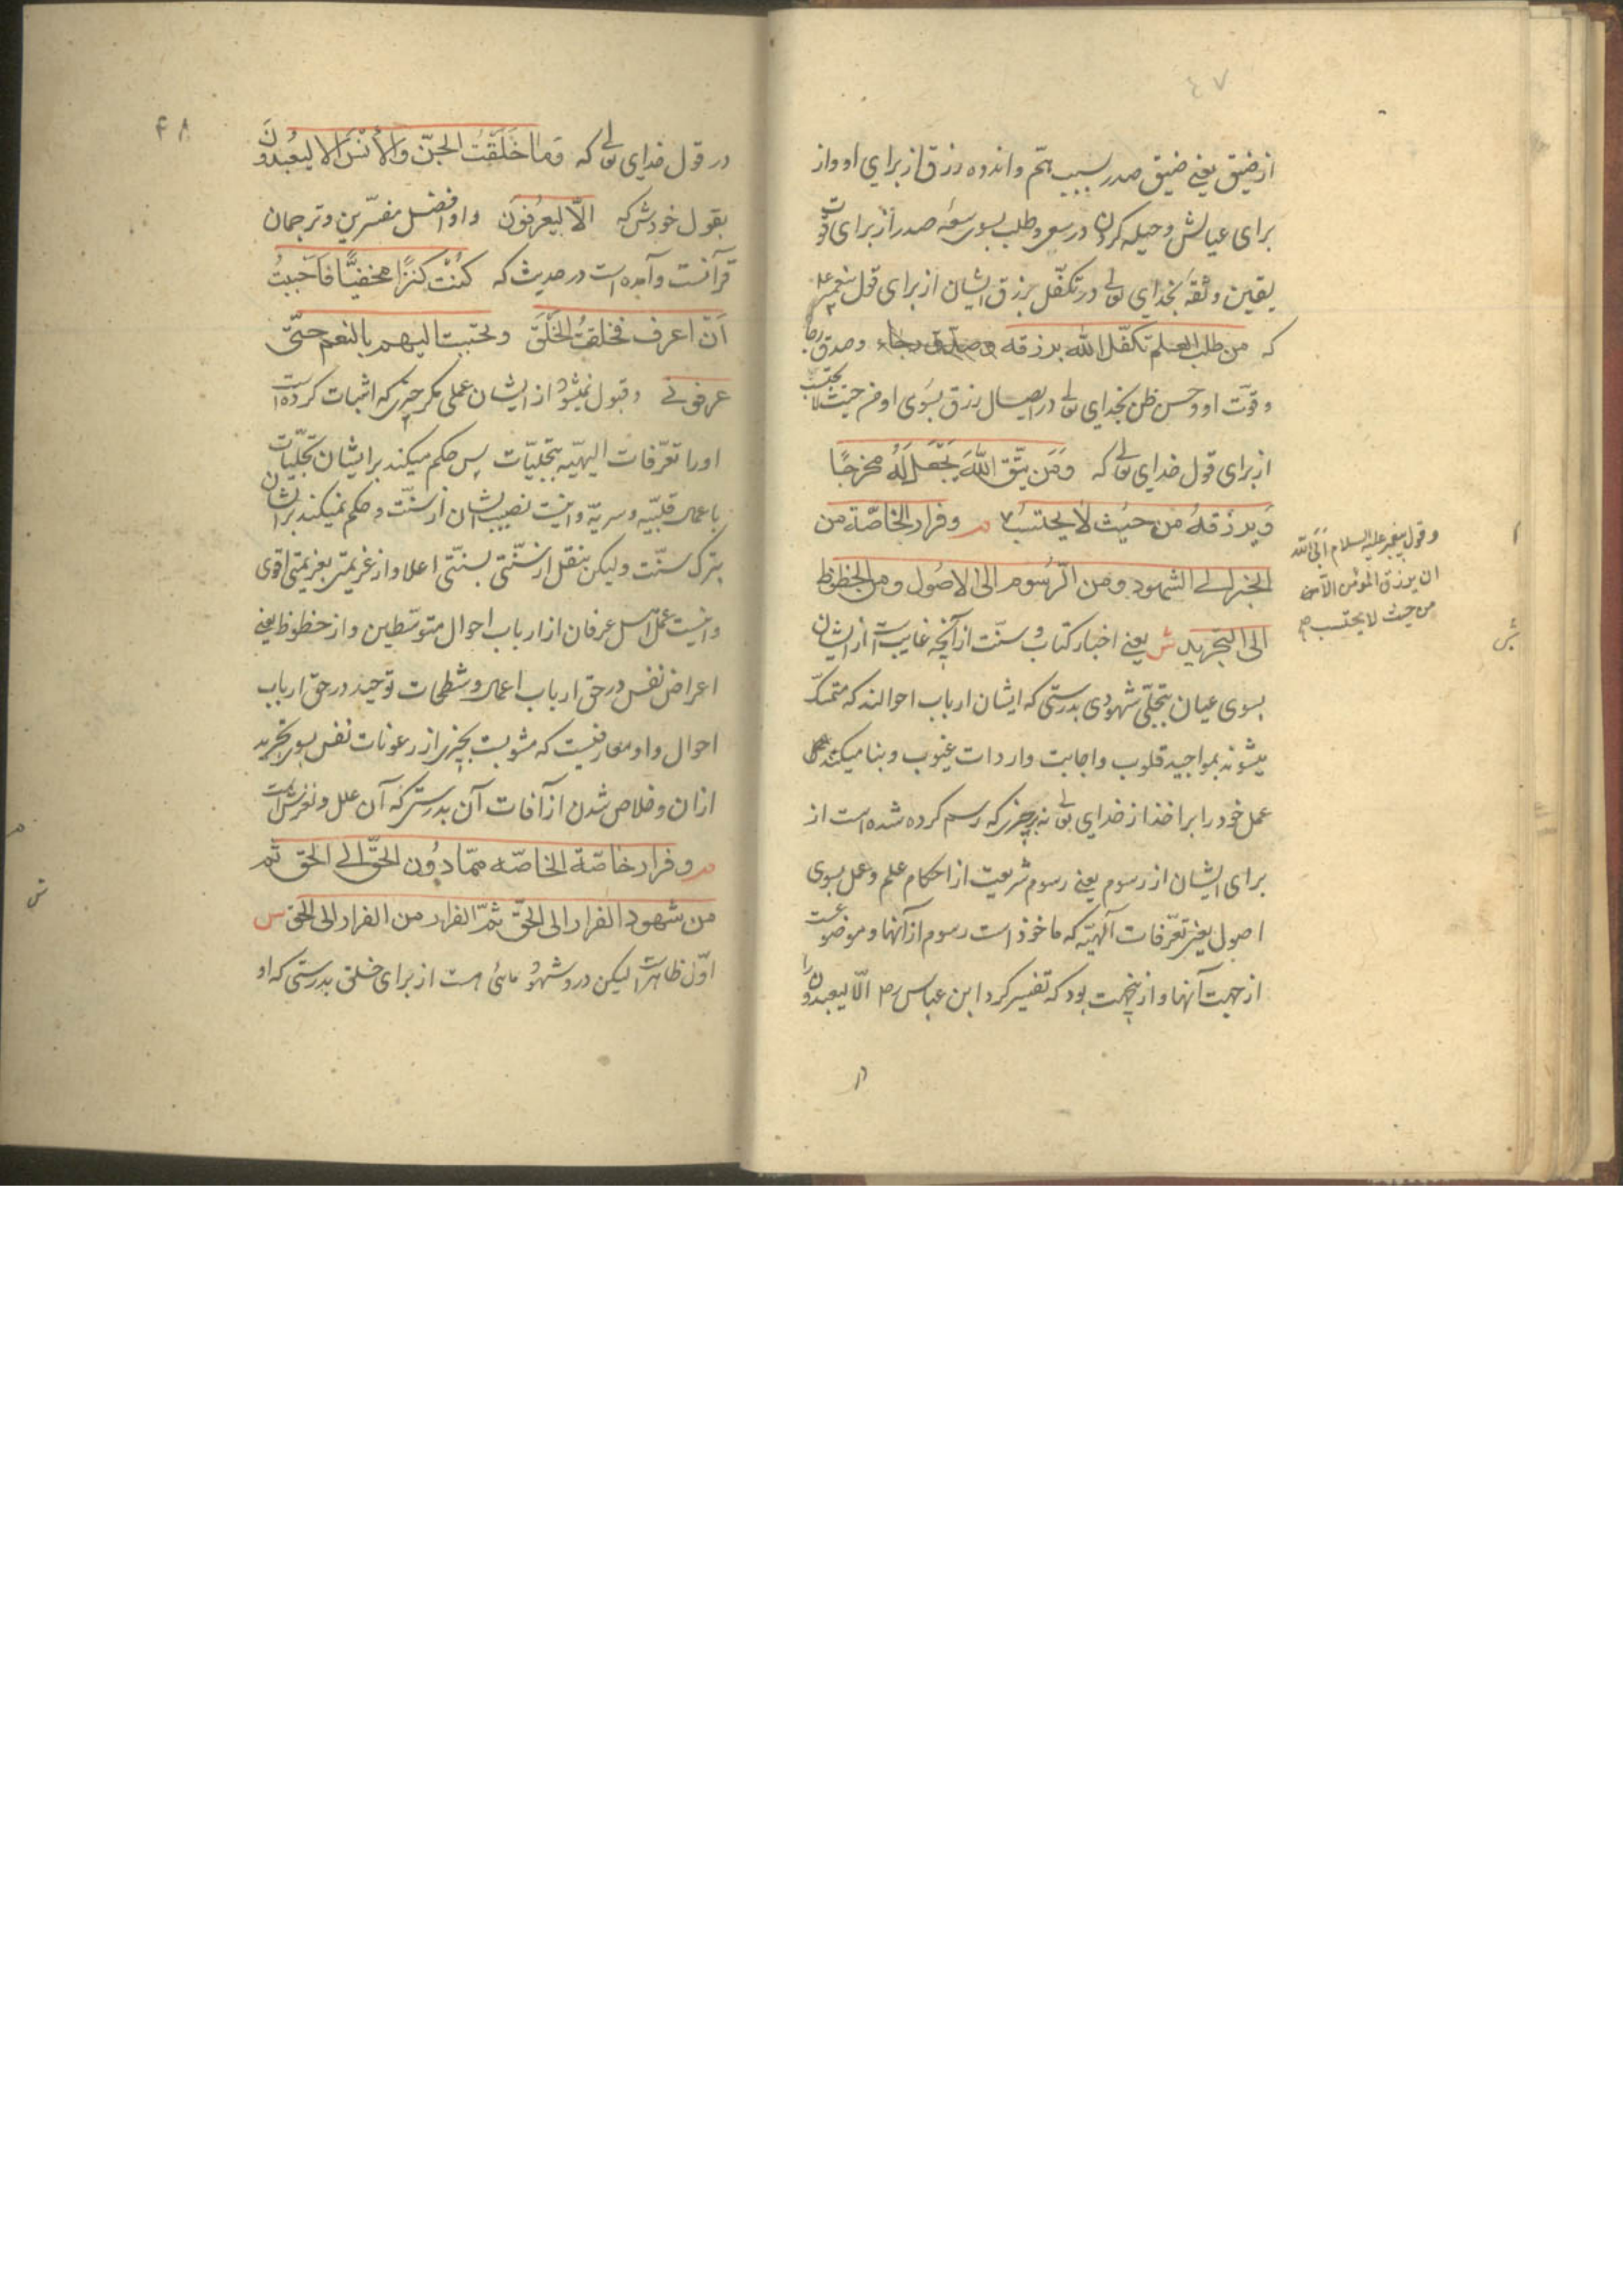 ٤٧
از ضیق یعنی ضیق صدر بسبب هم و اندوه رزق از برای او و از
برای عیالش و حیله کردن در سعی و طلب بسوی سعه صدر از برای قوت
یقین و ثقه بخدای تعالی در تکفل برزق ایشان از برای قول پیغمبر علیه
که من طلب العلم تکفّل الله برزقه وصدق رجاء وصدق رجا
و قوّت او و حسن ظن بخدای تعالی در ایصال رزق بسوی او من حیث لا یحتسب
از برای قول خدای تعالی که وَمَن یتّق اللهَ یَجْعَل لَهُ مخرجًا
وَیرزقهُ من حیُث لا یحتسبُ م وفرار الخاصّة من
الخبر الی الشهود ومن الرّسوم الی الاصُول ومن الحظوظ
الی التجرید ش یعنی اخبار کتاب و سنّت از آنچه غایبست از ایشان
بسوی عیان بتجلّی شهودی بدرستی که ایشان ارباب احوالند که متمسک
میشوند بمواجید قلوب و اجابت واردات غیوب و بنا میکنند
عمل خود را بر اخذ از خدای تعالی نه بر چیزی که رسم کرده شده است از
برای ایشان از رسوم یعنی رسوم شریعت از احکام علم و عمل بسوی
اصول یعنی تعرّفات الٓهیّه که ماخوذ است رسوم از آنها و موضوعست
از جهت آنها و از ینجهت بود که تفسیر کرد ابن عباس رض الّا لیعبدون را
و قول پیغمبر علیه السلام اَبَی الله
ان یرزق المؤمن الّا من
من حیث لا یحتسب
ش
در
٤٨
در قول خدای تعالی که وَمٰا خَلَقْتُ الجنّ وَالأنْسَ الا لیَعْبُدوُنَ
بقول خودش که الّا لیعرُفونَ و او افضل مفسّرین و ترجمان
قرآنست و آمده است در حدیث که کُنْت کنزًا مخفیًّا فَاَحْببتُ
اَنْ اعرف فخلقتُ الخَلقَ وتحببت الیهم بالنعم حتّی
عرفونی و قبول نمیشود از ایشان عملی مگر چیزی که اثبات کرده است
او را تعرّفات الیهیّه بتجلیّات پس حکم میکند بر ایشان تجلیّات
باعمال قلبیّه و سریّه و اینست نصیب ایشان از سنّت و حکم نمیکند بر ایشان
بترک سنّت ولیکن بنقل از سنّتی بسنّتی اعلا و از عزیمتی بعزیمتی اقوی
و اینست عمل اهل عرفان از ارباب احوال متوسّطین و از حظوظ یعنی
اعراض نفس در حق ارباب اعمال و شطحات توحید در حق ارباب
احوال و او معارفیست که مشوبست بچیزی از رعونات نفس بسوی تجرید
از آن و خلاص شدن از آفات آن بدرستی که آن علل و نفرتست
م وفرار خاصّة الخاصّه ممّا دوُن الحقّ الی الحق ثم
من شهود الفرار الی الحقّ ثمّ الفرار من الفرار الی الحق ش
اوّل ظاهر است لیکن در و شهود مائی هست از برای خلق بدرستی که او
م
ش